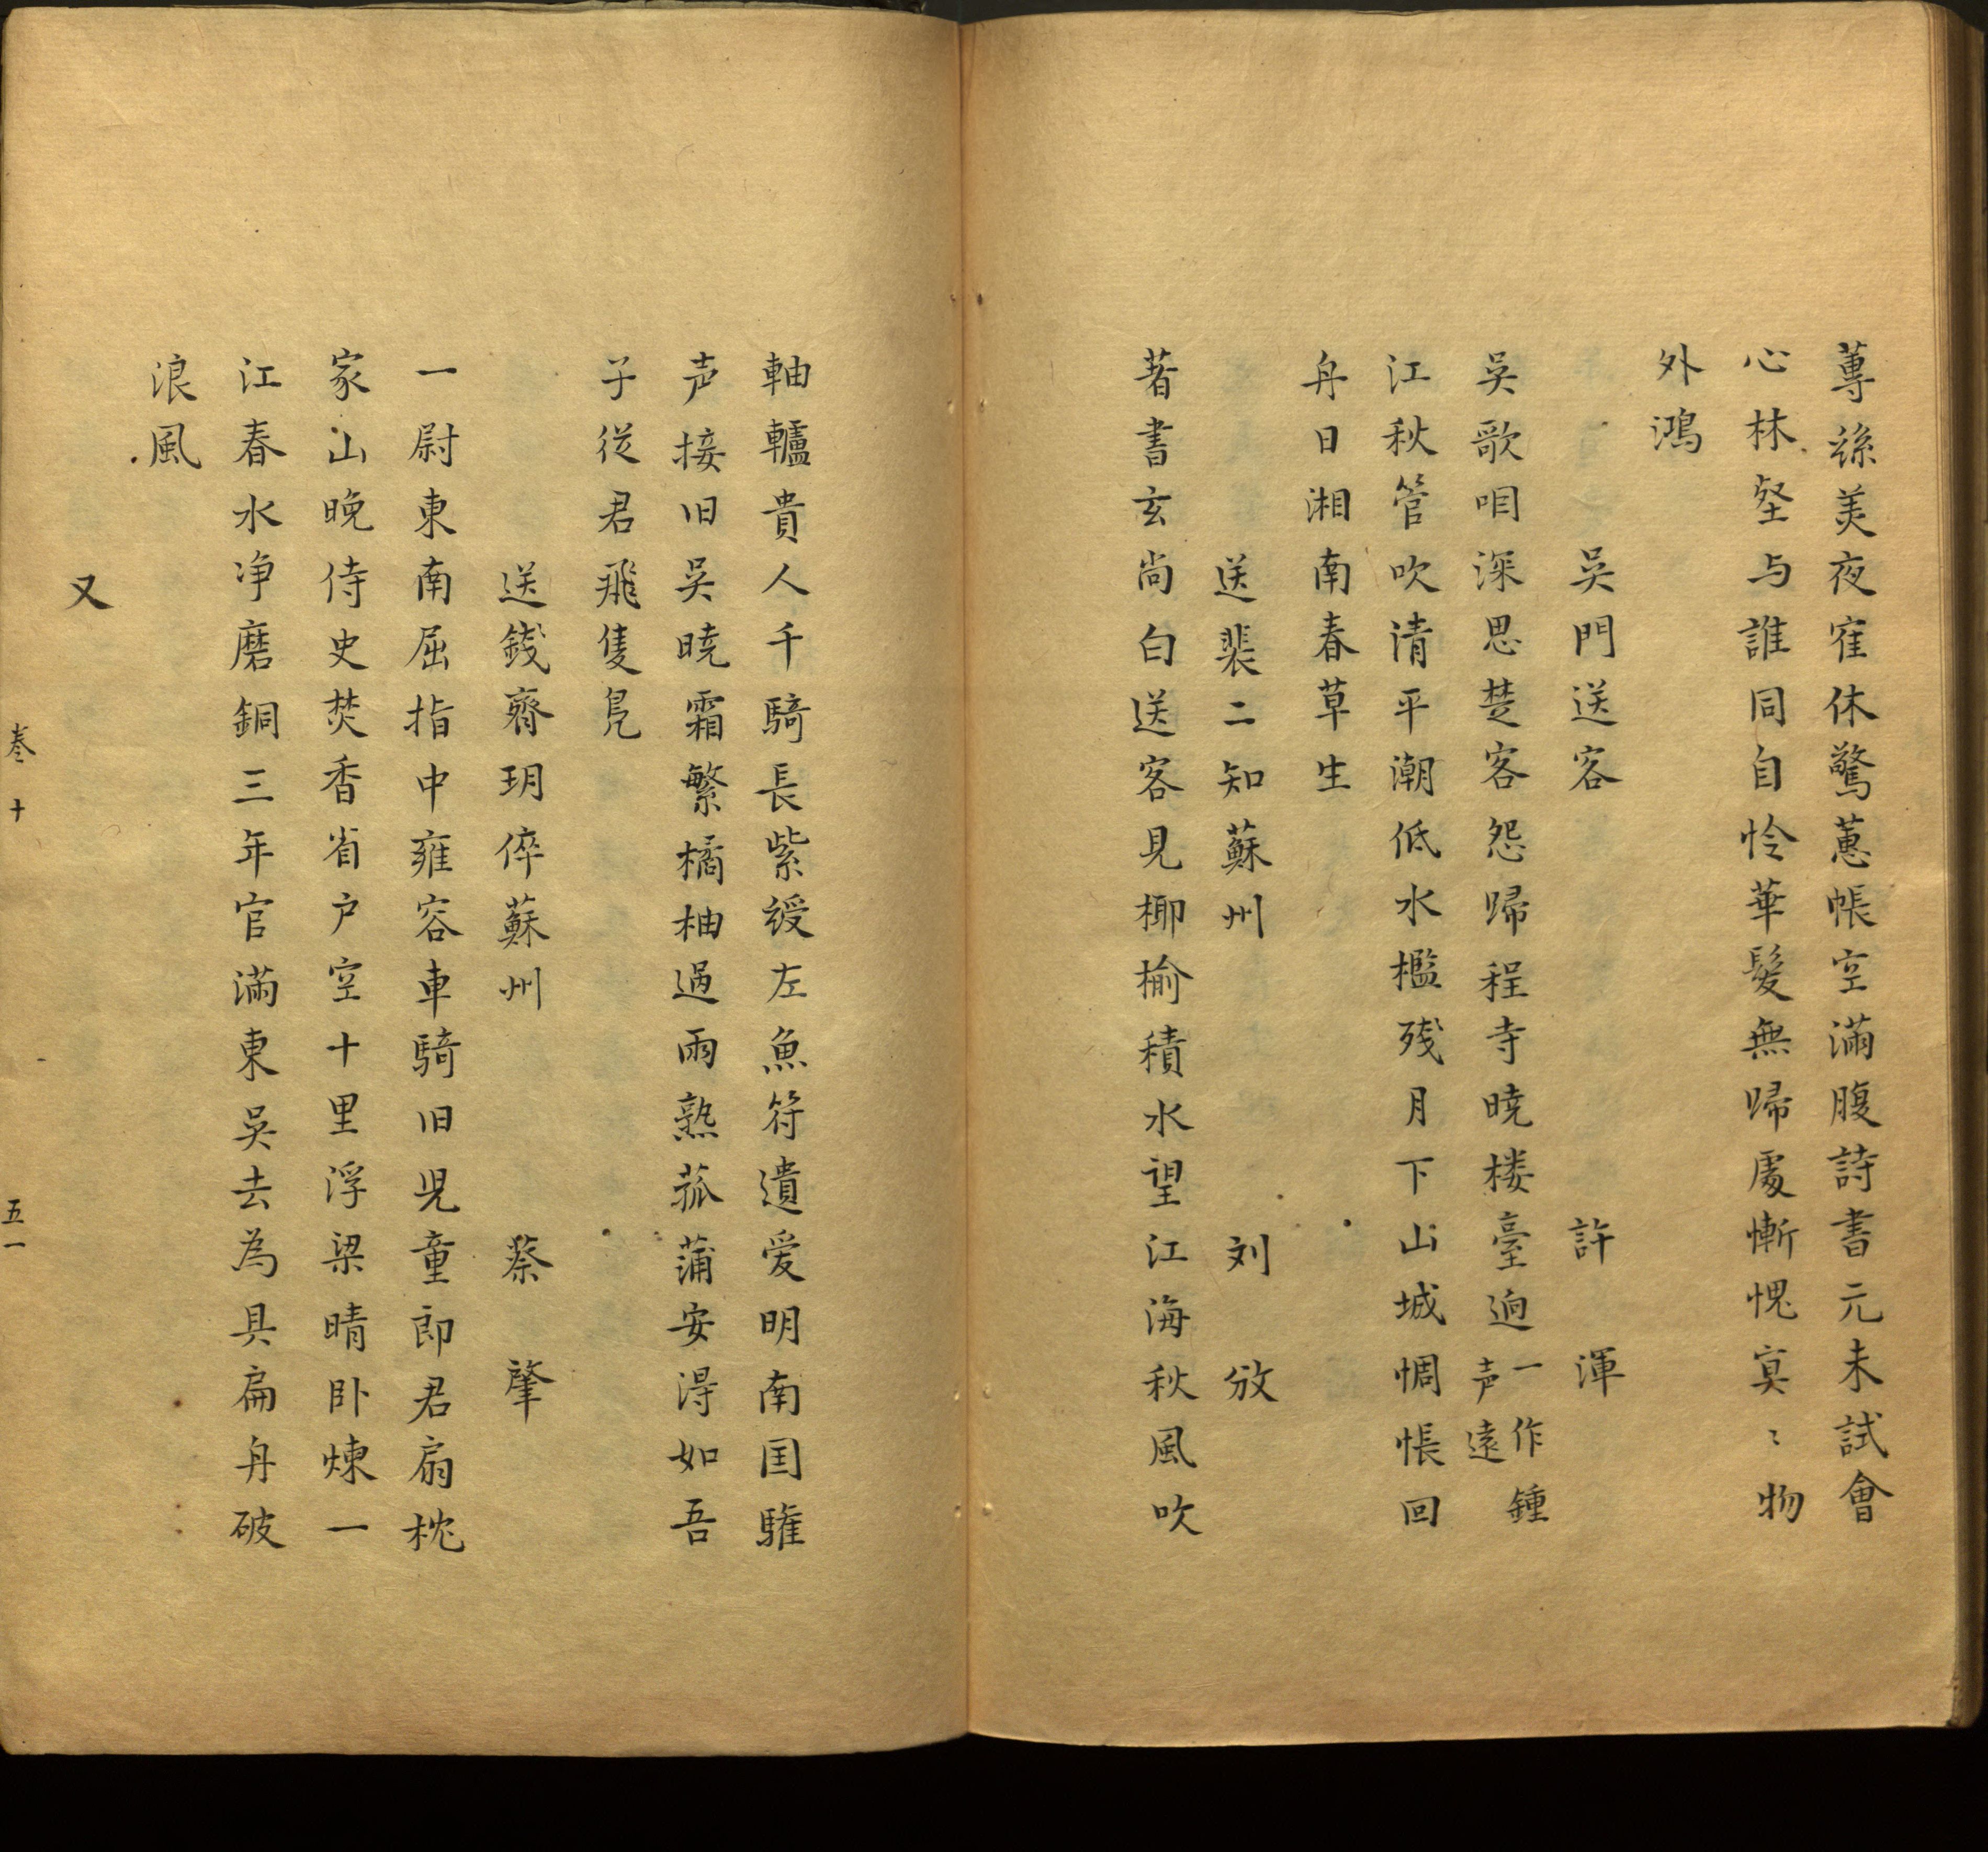 蓴絲美夜寉休驚蕙帳空滿腹詩書元未試會
心林壑与誰同自怜華髮無歸處慚愧寞〻物
外鴻
吳門送客 許渾
吳歌咽深思楚客怨歸程寺曉楼臺迥一作鍾声遠
江秋管吹清平潮低水檻残月下山城惆悵回
舟日湘南春草生
送裴二知蘇州 刘攽
著書玄尚白送客見椰榆積水望江海秋風吹
軸轤貴人千騎長紫綬左魚符遺爱明南国騅
声接旧吳曉霜繁橘柚過雨熟菰蒲安淂如吾
子從君飛隻鳧
送錢齊玥倅蘇州 蔡肇
一尉東南屈指中雍容車騎旧児童郎君扇枕
家山晚侍史焚香省户空十里浮梁晴卧煉一
江春水净磨銅三年官滿東吳去為具扁舟破
浪風
又
卷十 五一